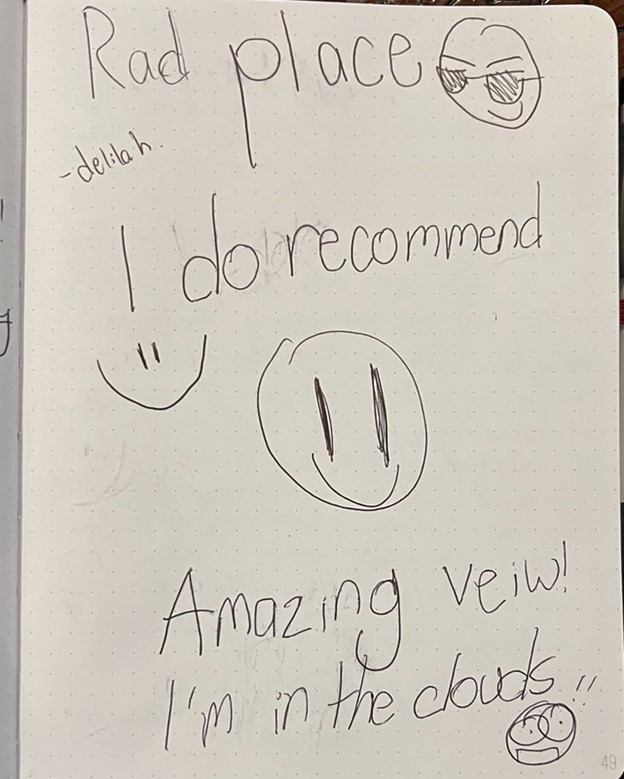 Rad place
-delilah.
I do recommend
Amazing veiw!
I'm in the clouds!!
49